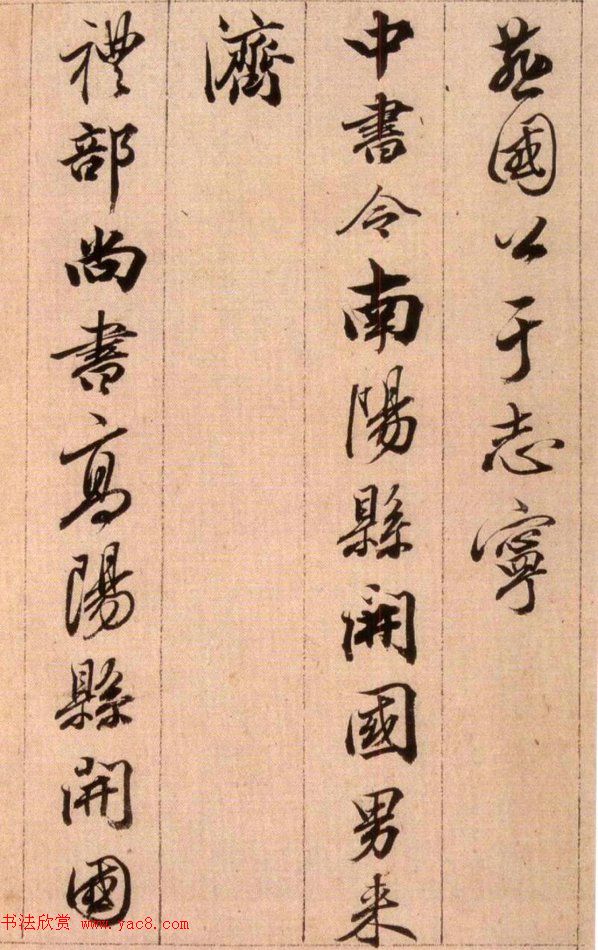 燕國公于志寧
中書令南陽縣開國男来
濟
禮部尚書高陽縣開國
书法欣赏 www.yac8.com